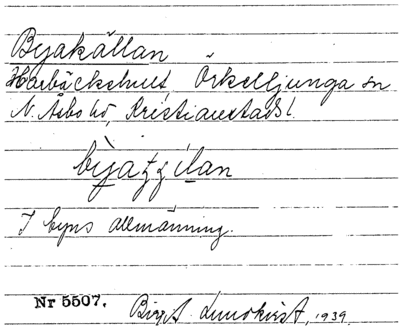 Byakällan
Harbäckshult, Örkelljunga sn
N. Åsbo hd, Kristianstads l.
I byns allmänning.
Nr 5507. Birgit Lundkvist, 1939.